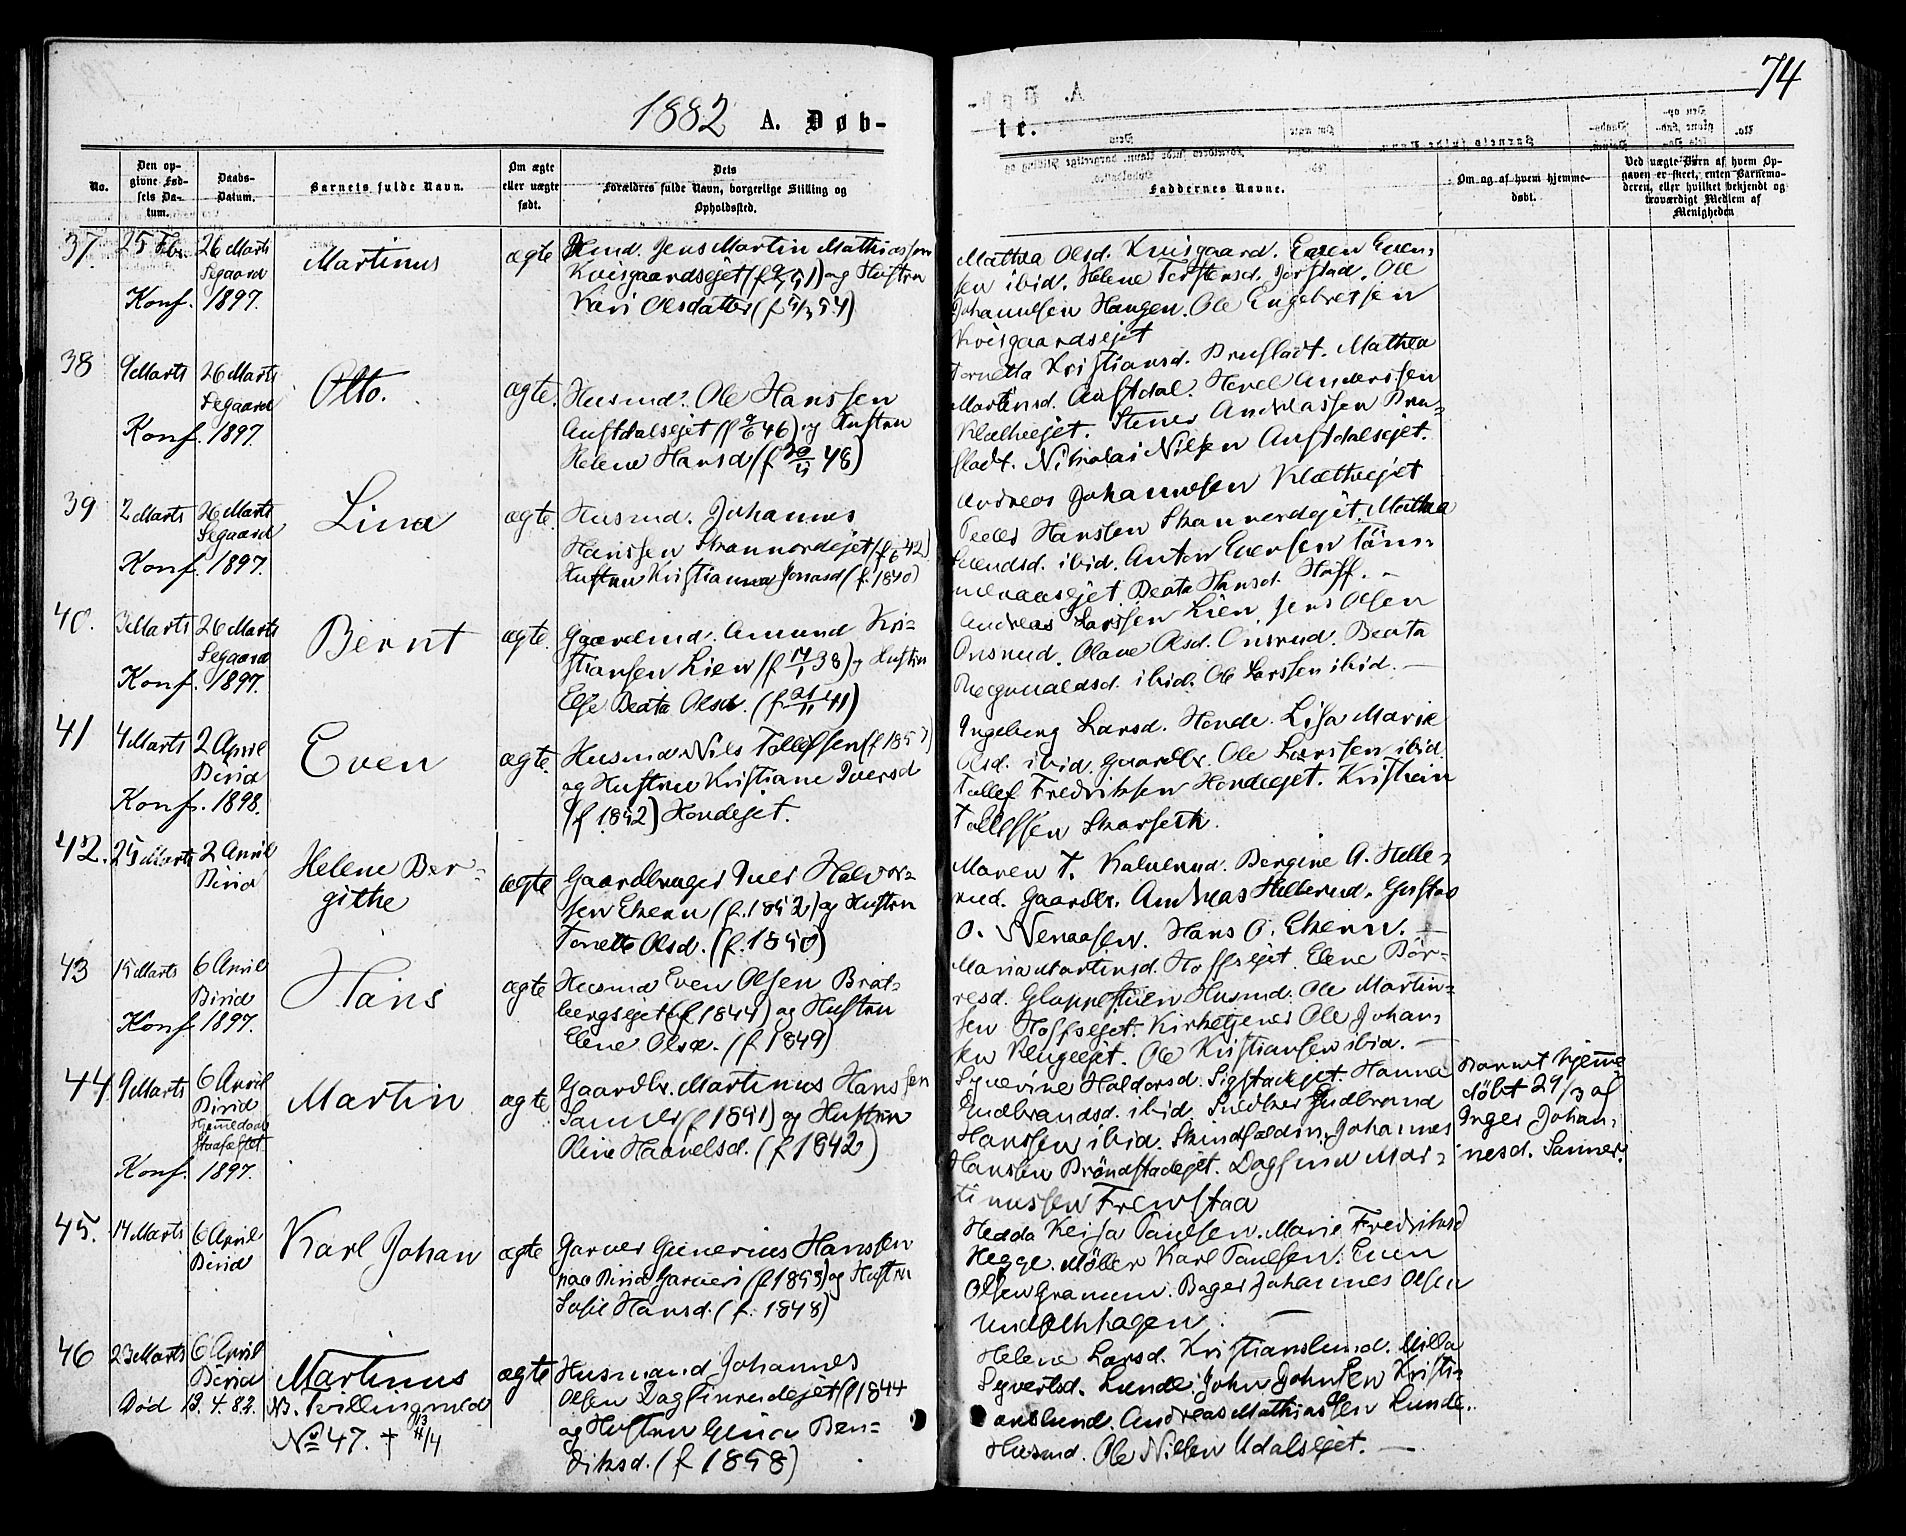 1882 A. Døb-
te.
74
No.
Den op-
givne Fød-
sels Da-
tum.
Daabs-
Datum.
Barnets fulde Navn.
Om ægte
eller uægte
født.
Dets
Forældres fulde Navn, borgerlige Stilling og
Opholdssted.
Faddernes Navne.
Om og af hvem hjemme-
døbt.
Ved uægte Børn af hvem Op-
gaven er skeet, enten Barnemo-
deren, eller hvilket bekjendt og
troværdigt Medlem af
Menigheden
37.
25 Febr.
26 Marts
Segaard
Konf. 1897.
Martinus
ægte
Husmd. Jens Martin Mathiassen
Kvisgaardsejet og Hustru
Kari Olsdatter
Mathea Olsd. Kvisgaard. Even Even-
sen ibid. Helene Torstensd. Jørstad. Ole
Johannesen Haugen. Ole Engebretsen
Kvisgaardsejet
38
9 Marts
26 Marts
Segaard
Konf. 1897.
Otto.
ægte.
Husmd. Ole Hanssen
Austdalsejet (f 9/6 46) og Hustru
Helene Hansd (f 30/11 48)
Kristiansd. Brufladt. Mathea
Martinsd. Austdal. Anderssen
Andreassen Bru-
fladt. Nikolai Nilsen Austdalsejet.
39
2 Marts
26 Marts
Segaard
Konf. 1897.
Lina
ægte.
Husmd. Johannes
Hanssen
Hustru Kristianna Jonasd (f. 1840)
Andreas Johannesen
Peder Hanssen Mathea
Svendsd. ibid. Anton Evensen
Beata Hansd. Hoff. -
40.
3 Marts
26 Marts
Segaard
Konf. 1897.
Bernt
ægte.
Gaardmd. Amund Kri-
stiansen Lien (f 14/1 38) og Hustru
Else Beata Olsd. (f 21/11 41)
Andreas Larssen Lien Jens Olsen
Onsrud. Olave Olsd. Onsrud. Beata
ibid. Ole Larssen ibid. -
41
4 Marts
2 April
Birid
Konf. 1898.
Even
ægte.
Husmd Nils Tollefsen
og Hustru Kristiane Iversd
(f 1852) Hondejet.
Ingeborg Larsd. Honde. Lisa Marie
Olsd. ibid. Gaardbr. Ole Larssen ibid
Tollef Fredriksen Hondeejet. Kristian
Tollefssen Skarseth.
42.
25 Marts
2 April
Birid
Helene Ber-
githe
ægte
Gaardbruger Iver Halvor-
sen Ekern (f. 1852) og Hustru
Tonette Olsd. (f. 1850)
Maren T. Kalverud. Bergine A. Helle-
rud. Gaardbr. Andreas Hellerud. Gustav
O. Hans O. Ekern. -
43
15 Marts
6 April
Birid
Konf 1897.
Hans
ægte
Husmd Even Olsen Brat-
bergsejet (f 1844) og Hustru
Elene Olsd. (f 1849)
Maria Martinsd. Hoffsejet. Elene Bør-
resd. Gloppestuen Husmd. Ole Martin-
sen Hoffsejet. Kirketjener Ole Johan-
sen Ole Kristiansen ibid. -
44
9 Marts
6 April
Birid
Hjemedaab
stadfæstet
Konf. 1897.
Martin
ægte
Gaardbr. Martinus Hanssen
Sanner (f 1851) og Hustru
Oline Haavelsd. (f 1842)
Haldorsd. Sigstadejet. Hanna
Gudbrandsd. ibid. Snedker Gudbrand
Hanssen ibid. Skindfældm. Johannes
Hanssen Brøndstadejet. Dagfind Mar-
tinussen Fremstad
Barnet hjemme
døbt 29/3 af
Inger Johan-
nesd. Sanner.
45.
14 Marts
6 April
Birid
Karl Johan
ægte
Garver Gunerius Hanssen
paa Birid Garveri (f 1853) og Hustru
Sofie Hansd. (f. 1848)
Hedda Paulsen. Marie Fredriksd
Hegge. Møller Karl Paulsen. Even
Olsen Bager Johannes Olsen
46
23 Marts
6 April
Birid
Død 13.4.82.
Martinus
NB. Tvilling med
No 47. † 13/4
ægte
Husmand Johannes
Olsen Dagfinrudejet (f 1844
og Hustru Gina Ben-
diksd. (f 1858)
Helene Larsd. Kristianslund. Milla
Syvertsd. Lunde. John Johnsen Kristi-
anslund. Andreas Mathiassen Lunde.
Husmd. Ole Nilsen Udalsejet. -